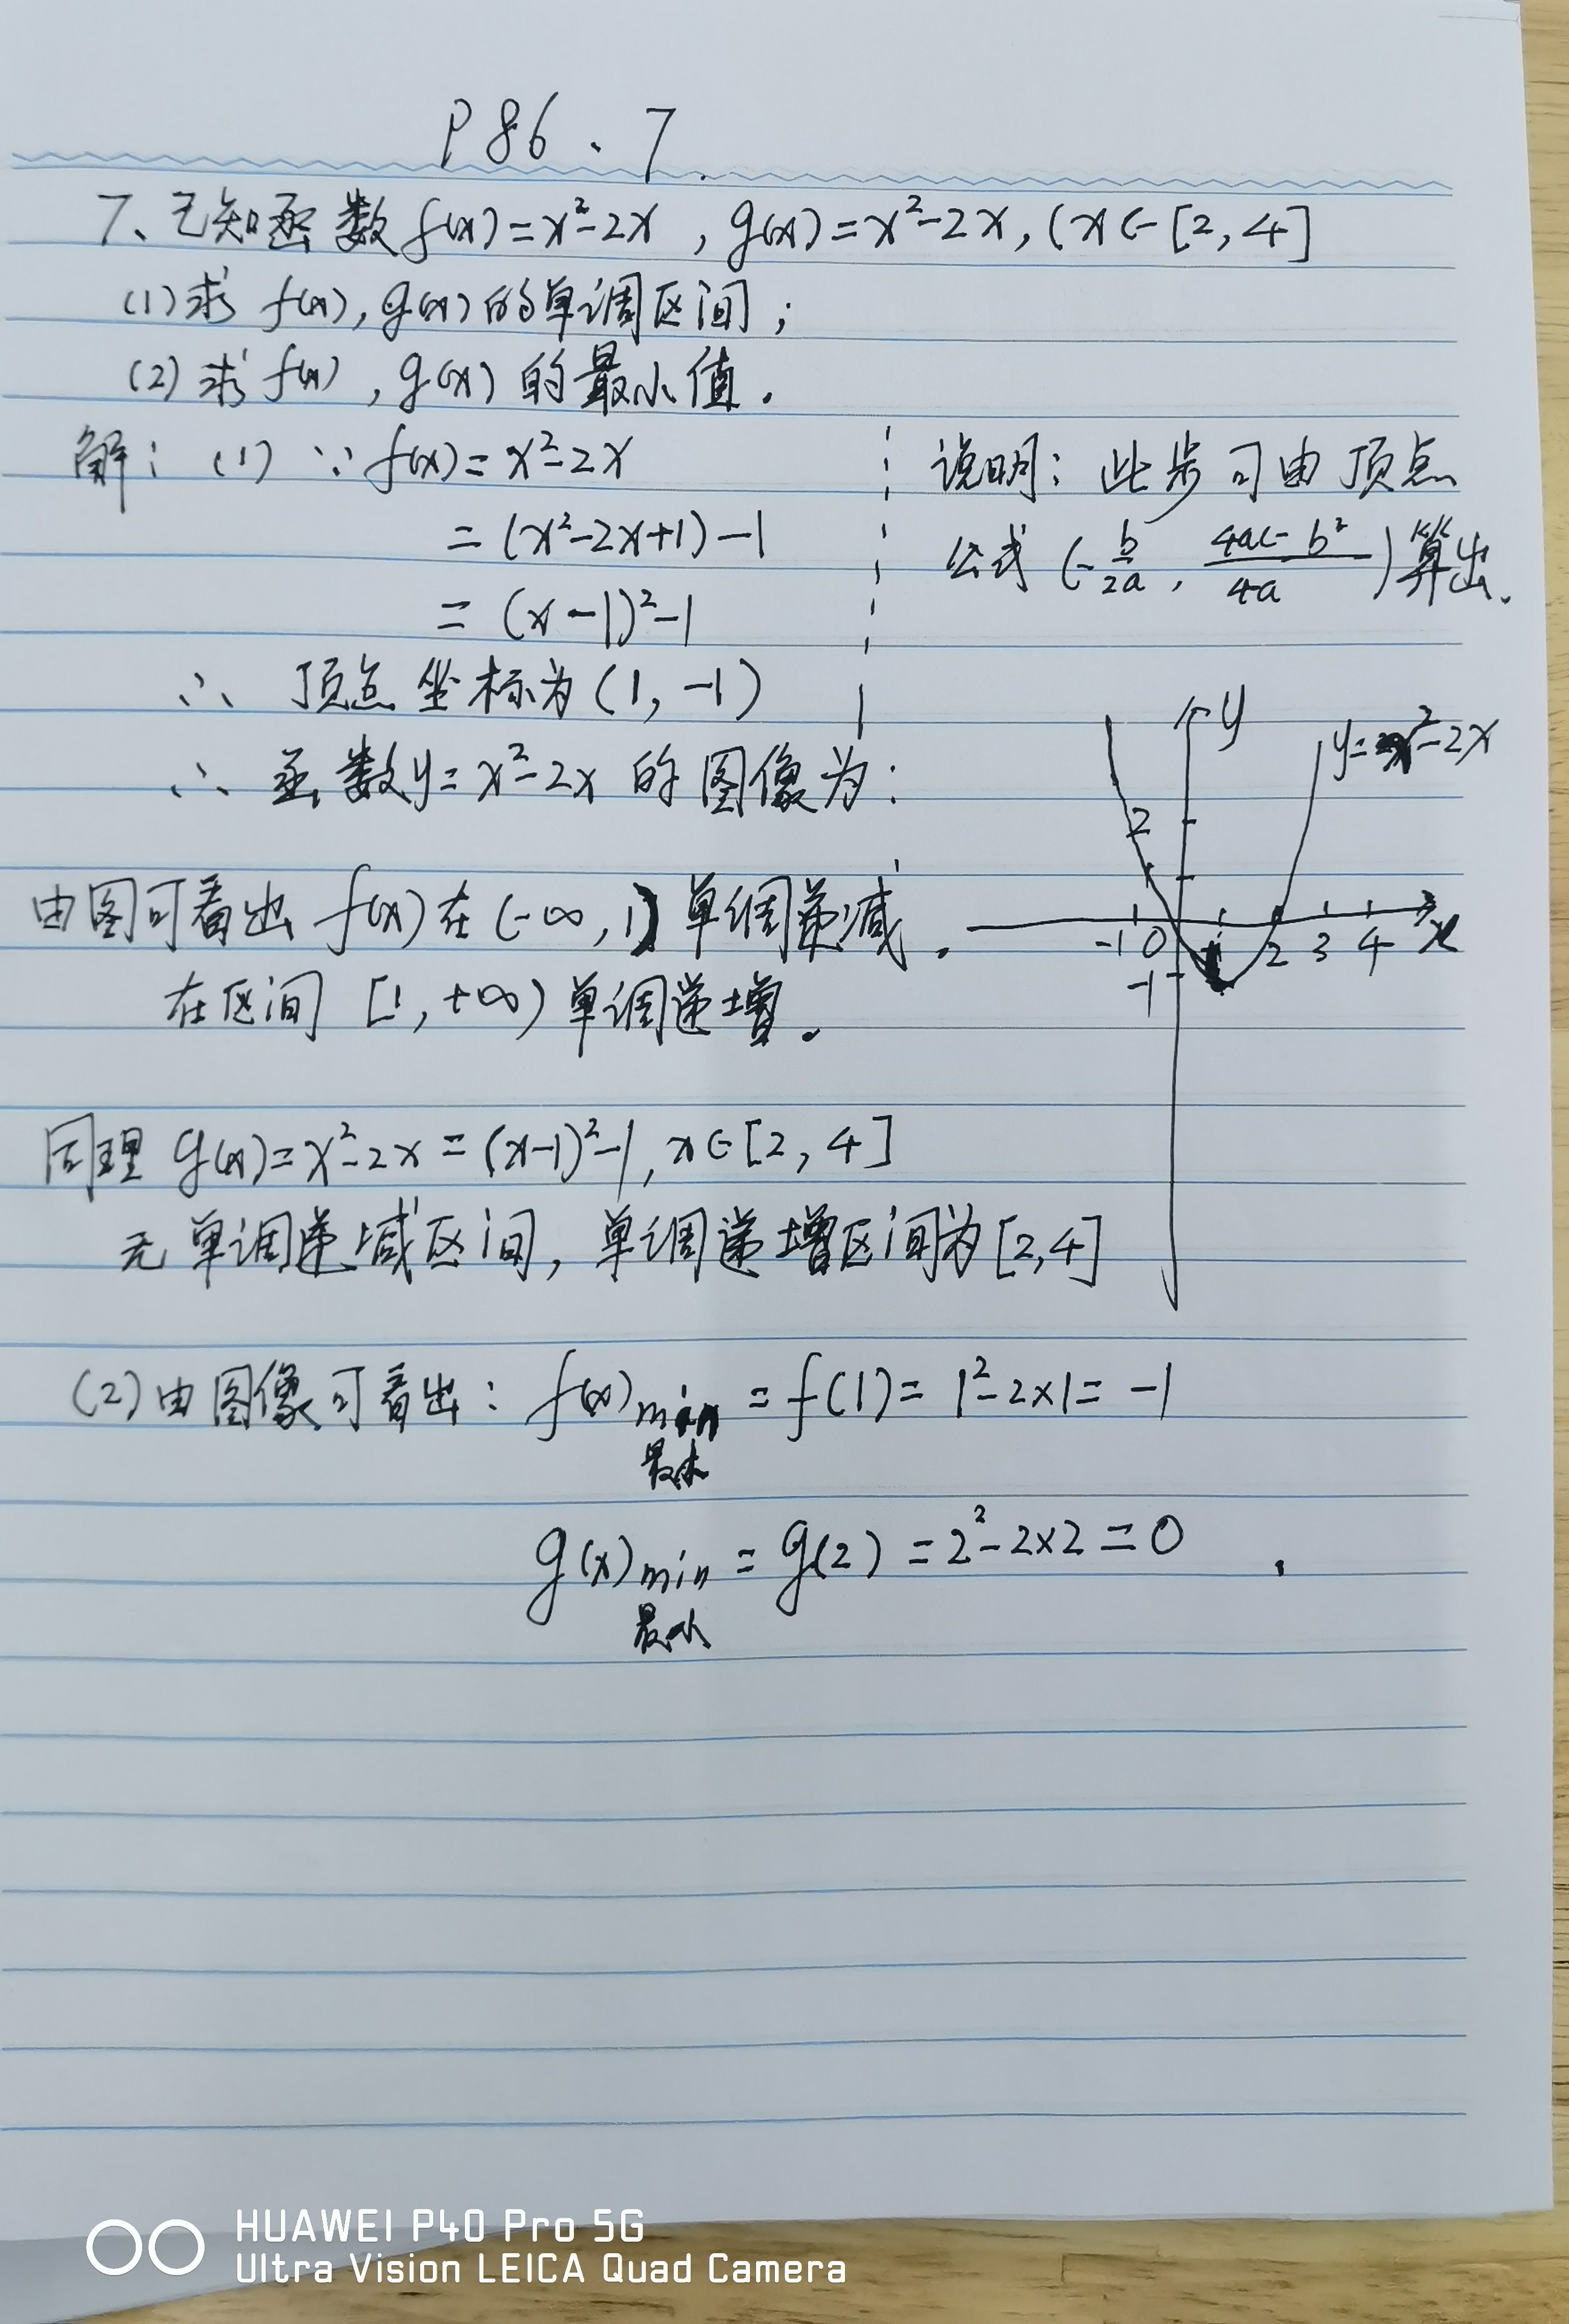 P86、7.
7、已知函数f(x)=x²-2x,g(x)=x²-2x,(x∈[2,4]
(1)求 f(x),g(x)的单调区间;
(2)求f(x),g(x)的最小值.
解:(1)∵f(x)=x²-2x
=(x²-2x+1)-1
=(x-1)²-1
说明:此步可由顶点
公式(-b/2a,4ac-b²/4a)算出.
∴ 顶点坐标为(1,-1)
∴ 函数y=x²-2x的图像为:
y
y=x²-2x
2
-1 0 1 2 3 4 x
-1
由图可看出 f(x)在(-∞,1]单调递减.
在区间 [1,+∞)单调递增。
同理 g(x)=x²-2x=(x-1)²-1,x∈[2,4]
无单调递减区间,单调递增区间为[2,4]
(2)由图像可看出:f(x)min=f(1)=1²-2×1=-1
最小
g(x)min=g(2)=2²-2×2=0.
最小
HUAWEI P40 Pro 5G
Ultra Vision LEICA Quad Camera